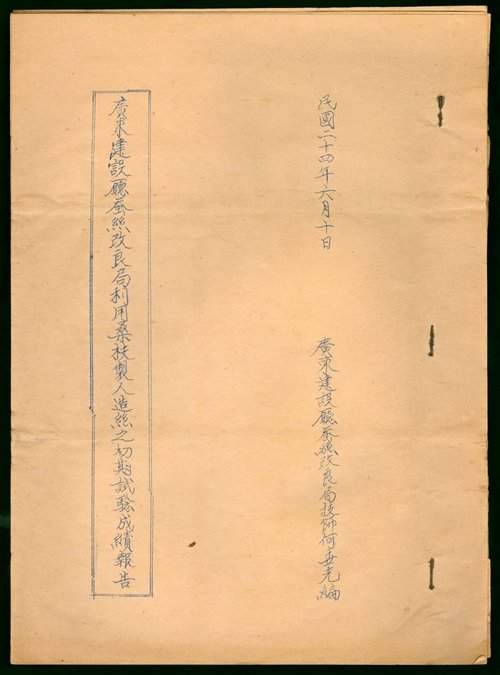 民國二十四年六月十日
廣東建設廳蚕絲改良局技師何垂光編
廣東建設廳蚕絲改良局利用桑枝製人造絲之初期試驗成績報告